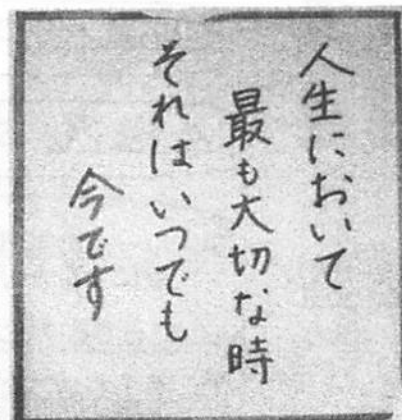 人生において
最も大切な時
それはいつでも
今です